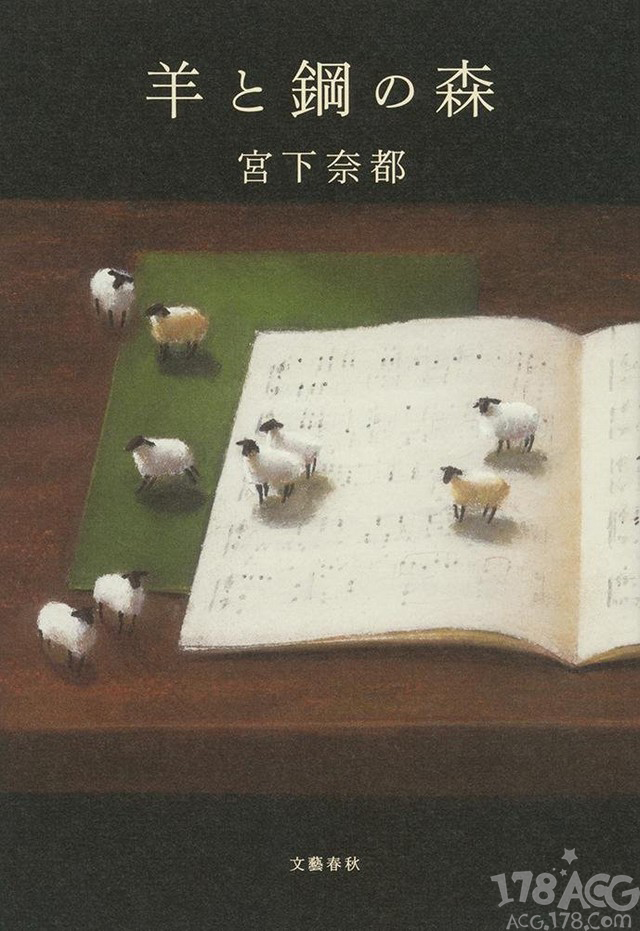 羊と鋼の森
宮下奈都
文藝春秋
178ACG
ACG.178.Com